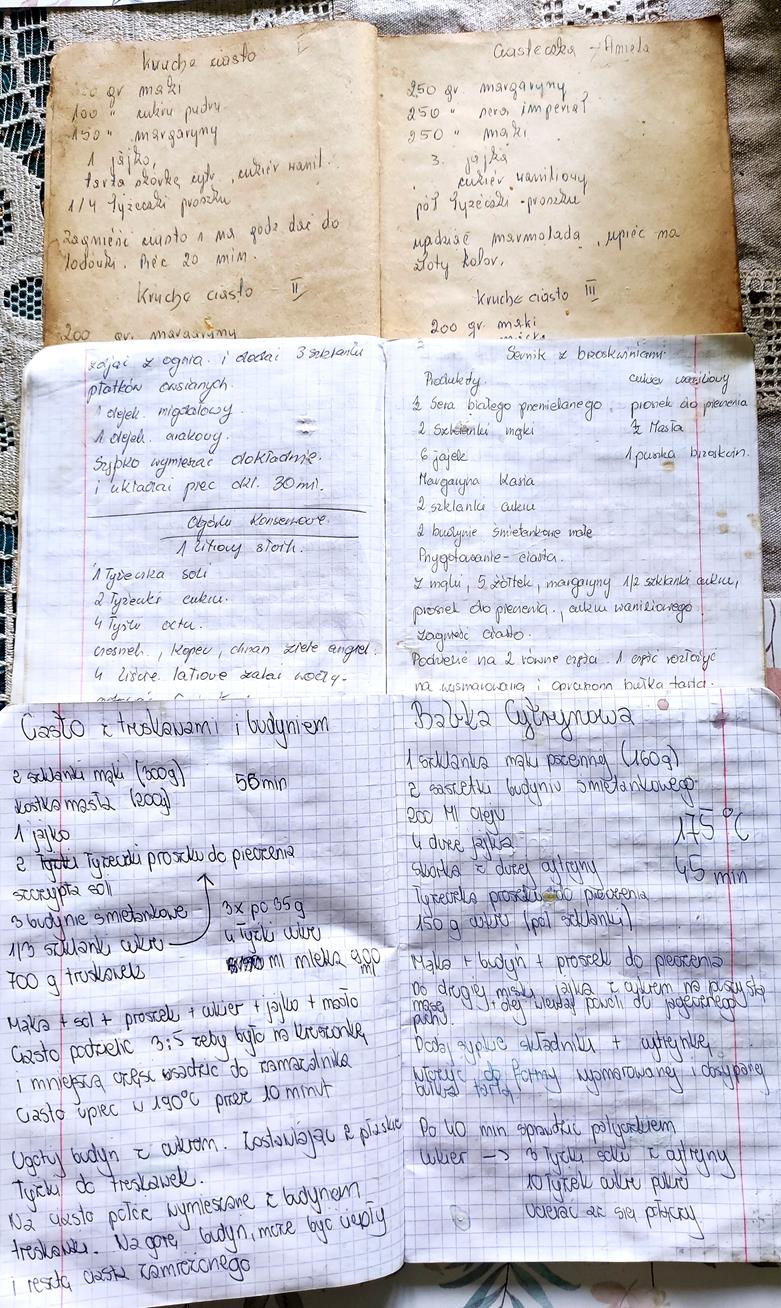 Kruche ciasto I
gr. mąki
100 " cukru pudru
150 " margaryny
1 jajko,
tarta skórkę cytr., cukier wanil.
1/4 łyżeczki proszku
Zagnieść ciasto i na godz dać do
lodówki. Piec 20 min.
Kruche ciasto II
200 gr. margaryny
Ciasteczka - Aniela
250 gr. margaryny
250 " sera imperiał
250 " mąki
3. jajka
cukier waniliowy
pół łyżeczki - proszku
nadziać marmoladą, upiec na
złoty kolor.
Kruche ciasto III
200 gr. mąki
zdjąć z ognia. i dodać 3 szklanki
płatków owsianych.
1 olejek. migdałowy.
1 olejek. arakowy.
Szybko wymieszać dokładnie.
i układać piec okl. 30 mi.
Ogórki Konserwowe.
1 litrowy słoik.
1 Łyżeczka soli
2 Łyżeczki cukru.
4 Łyżki octu.
czosnek., koper, chrzan ziele angiel.
4 liście laurowe zalać wodą.
Sernik z brzoskwiniami
Produkty.
cukier waniliowy
Sera białego przemielonego
proszek do pieczenia
2 Szklanki mąki
½ Masła
6 jajek
1 puszka brzoskwin.
Margaryna Kasia
2 szklanki cukru
2 budynie śmietankowe małe
Przygotowanie - ciasta.
Z mąki, 5 żółtek, margaryny 1/2 szklanki cukru,
proszek do pieczenia, cukru waniliowego.
zagnieść ciasto.
Podzielić na 2 równe części. 1 część rozłożyć
na wysmarowaną i oprószoną bułką tartą.
Ciasto z truskawkami i budyniem
2 szklanki mąki (300g)
56 min
kostka masła (200g)
1 jajko
2 łyżeczki proszku do pieczenia
szczypta soli
3 budynie śmietankowe
3x po 35g
1/3 szklanki cukru
4 łyżki cukru
700 g truskawek
ml mleka 900 ml
Mąka + sól + proszek + cukier + jajko + masło
Ciasto podzielić 3:5 żeby było na kruszonkę
i mniejszą część wsadzić do zamrażalnika
Ciasto upiec w 190°C przez 10 minut
Ugotuj budyń z cukrem. Zostawiając 2 płaskie
łyżki do truskawek.
Na ciasto połóż wymieszane z budyniem
truskawki. Na górę budyń, może być ciepły
i reszta ciasta zamrożonego
Babka Cytrynowa
1 szklanka mąki pszennej (160g)
2 saszetki budyniu śmietankowego
200 Ml oleju
175°C
4 duże jajka
skórka z dużej cytryny
45 min
Łyżeczka proszku do pieczenia
150 g cukru (pół szklanki)
Mąka + budyń + proszek do pieczenia
Do drugiej miski jajka z cukrem na puszystą
masę, + olej wlewać powoli do jajecznego
puchu.
Dodaj sypkie składniki + cytrynkę
włożyć do formy wysmarowanej i obsypanej
bułką tartą
Po 40 min sprawdzić patyczkiem
Lukier -> 3 łyżki soku z cytryny
10 łyżek cukru pudru
ucierać aż się połączy.